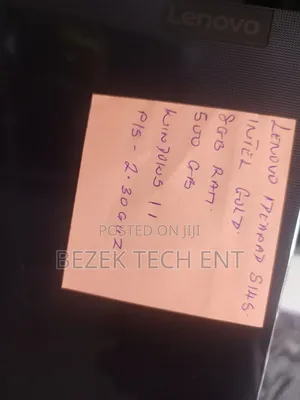 Lenovo
LENOVO IDEAPAD S145
INTEL GOLD.
8GB RAM.
500 GB
WINDOWS 11
P/S - 2.30GHZ
POSTED ON JIJI
BEZEK TECH ENT